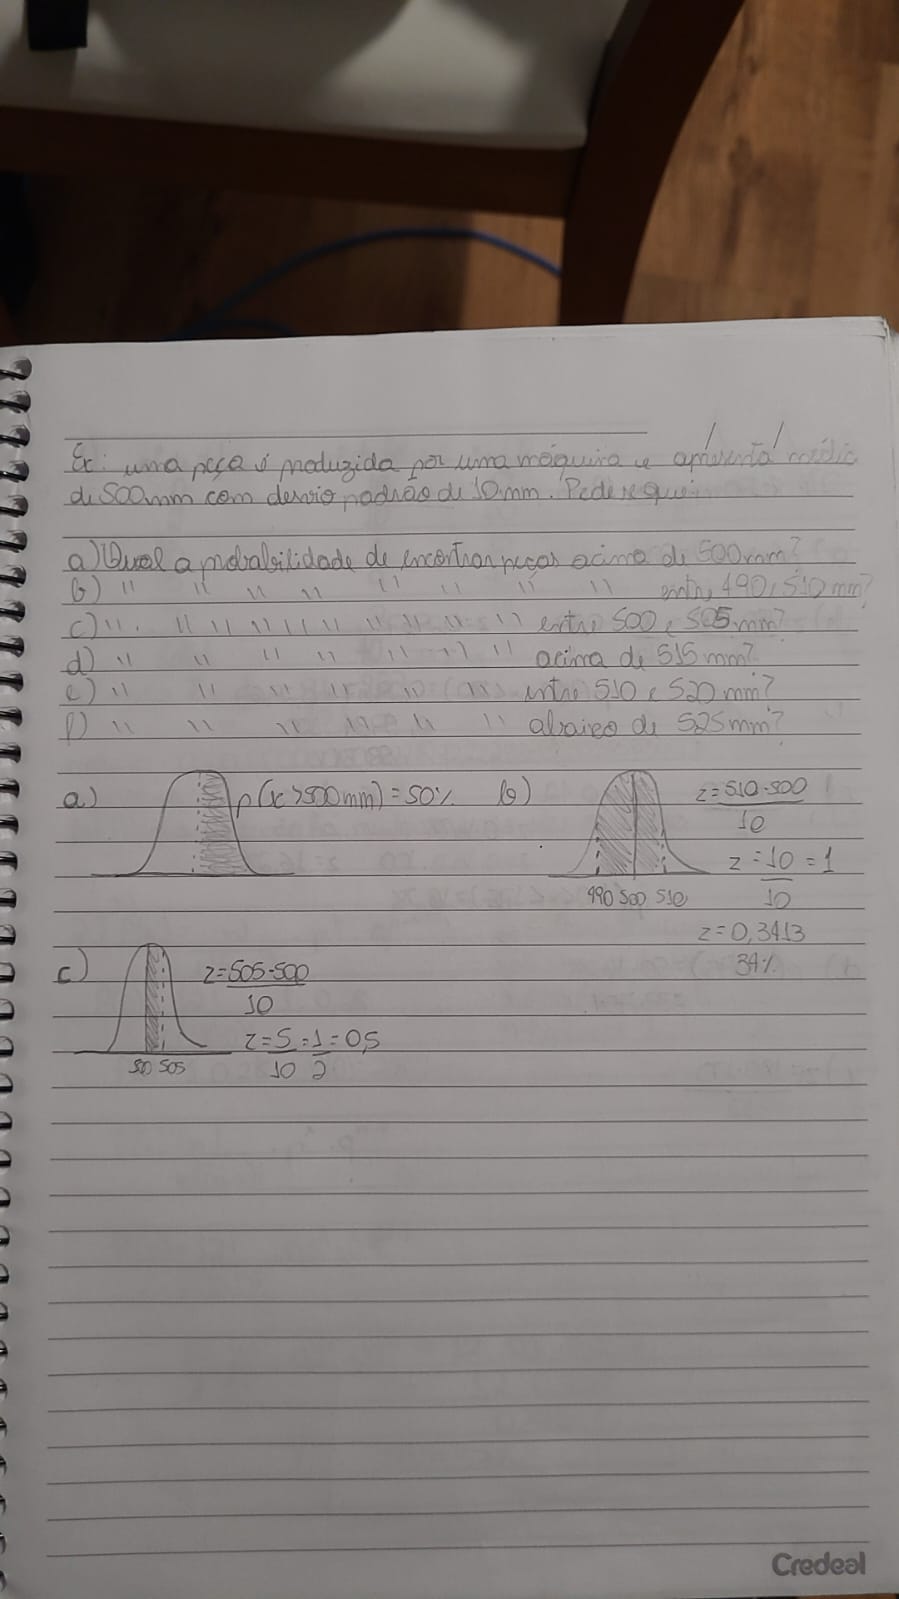 Ex: uma peça é produzida por uma máquina e apresenta média
de 500mm com desvio padrão de 10mm. Pede-se que:
a) Qual a probabilidade de encontrar peças acima de 500mm?
b) " " " " " " " " entre 490 e 510 mm?
c) " " " " " " " " " " entre 500 e 505mm?
d) " " " " " " " acima de 515mm?
e) " " " " " " entre 510 e 520mm?
f) " " " " " " abaixo de 525mm?
a) p(x>500mm) = 50%
b) z = 510-500
10
z = 10 = 1
10
490 500 510
z = 0,3413
34%
c) z = 505-500
10
z = 5 = 1 = 0,5
10 2
500 505
Credeal